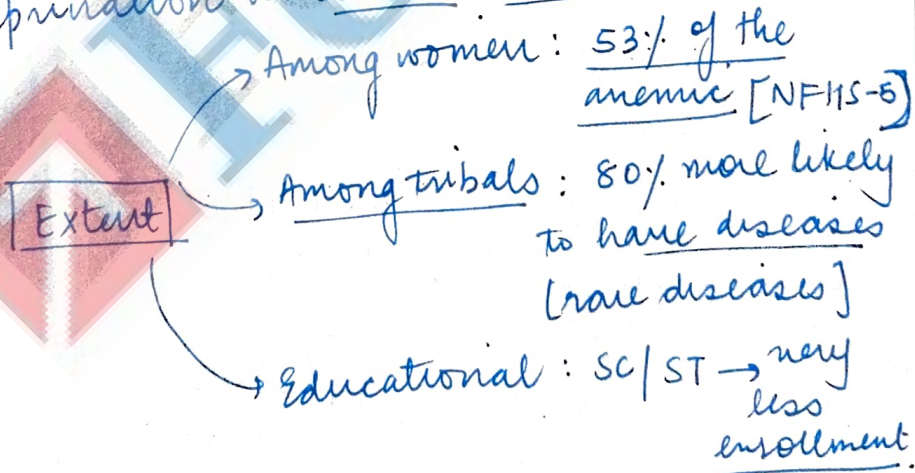 Among women : 53% of the
anemic [NFHS-5]
Extent
Among tribals : 80% more likely
to have diseases
[rare diseases]
Educational : SC/ST → very
less
enrollment.